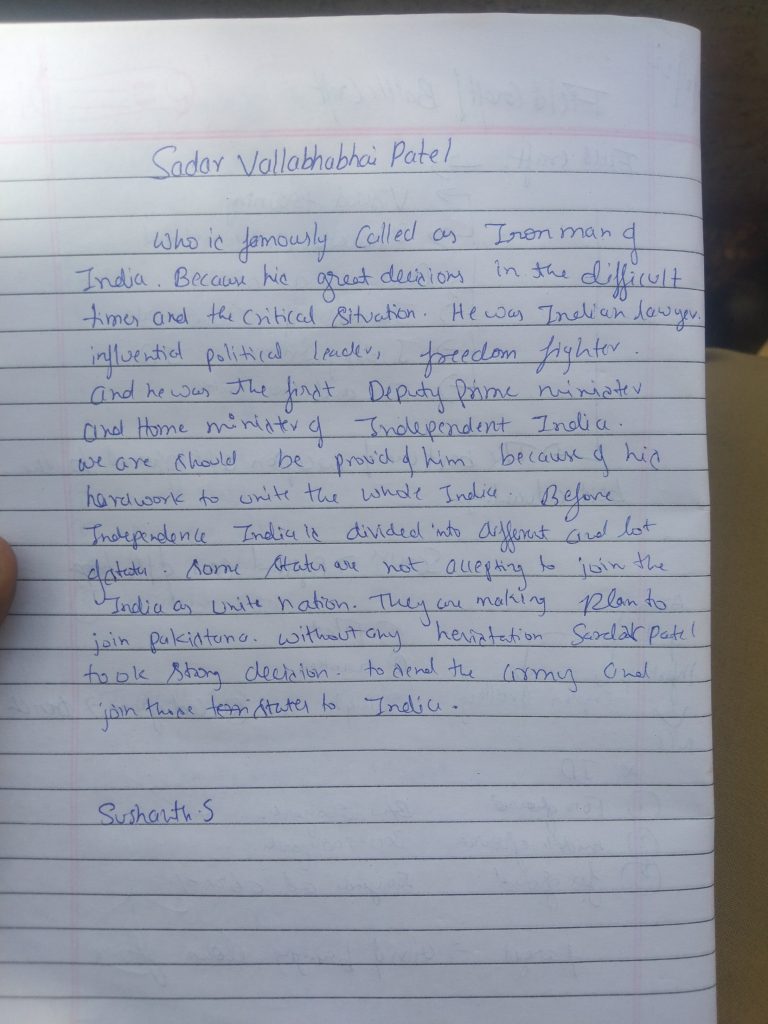 Sadar Vallabhabhai Patel
Who is famously Called as Iron man of
India. Because his great decisions in the difficult
times and the critical situation. He was Indian lawyer.
influential political leader, freedom fighter.
and he was the first Deputy prime minister
and Home minister of Independent India.
we are should be provid of him because of his
hardwork to unite the whole India. Before
Independence India is divided into different and lot
of state. some states are not accepting to join the
India as unite nation. They are making plan to
join pakistana. without any hesistation Sardar patel
took strong decision. to send the army and
join those states to India.
Sushanth.S